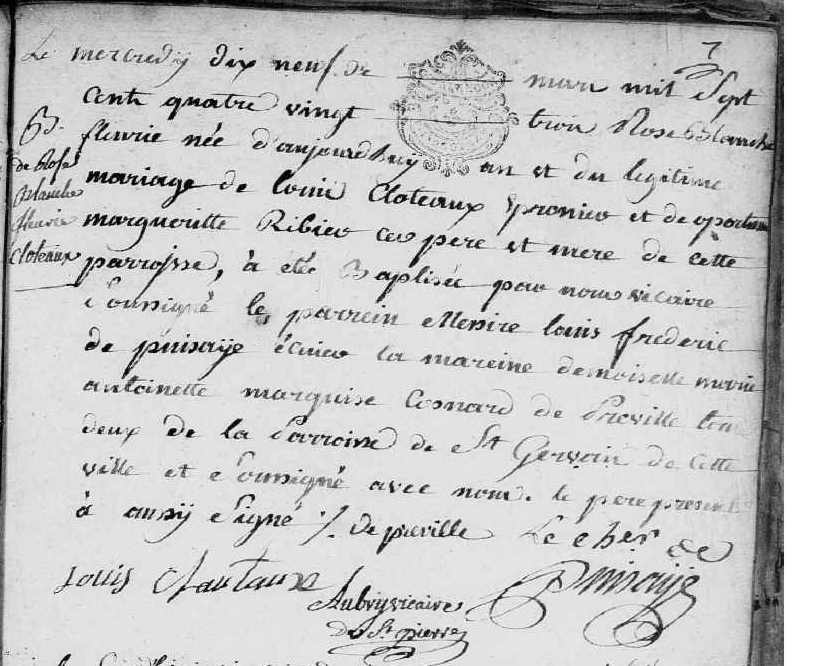 7
Le mercredÿ dix neuf de mars mil Sept
cents quatre vingt trois Rose Blanche
fleurie née d'aujourdhuy en et du legitime
mariage de louis Cloteaux et de oportune
margueritte Ribier ces pere et mere de cette
parroisse, à etée Baptisée par nous vicaire
Soussigné le parrein Messire louis frederic
de puisaÿe écuier la mareine demoiselle marie
antoinette marquise Cosnard de Préville tous
deux de la Parroisse de St Gervais de cette
ville et Soussigné avec nous. le pere present
à aussÿ Signé ./. De preville Le cher de
Puisaÿe
Louis Clautaux
Aubry vicaire
De St pierre
B.
de Rose
Blanche
fleurie
Cloteaux